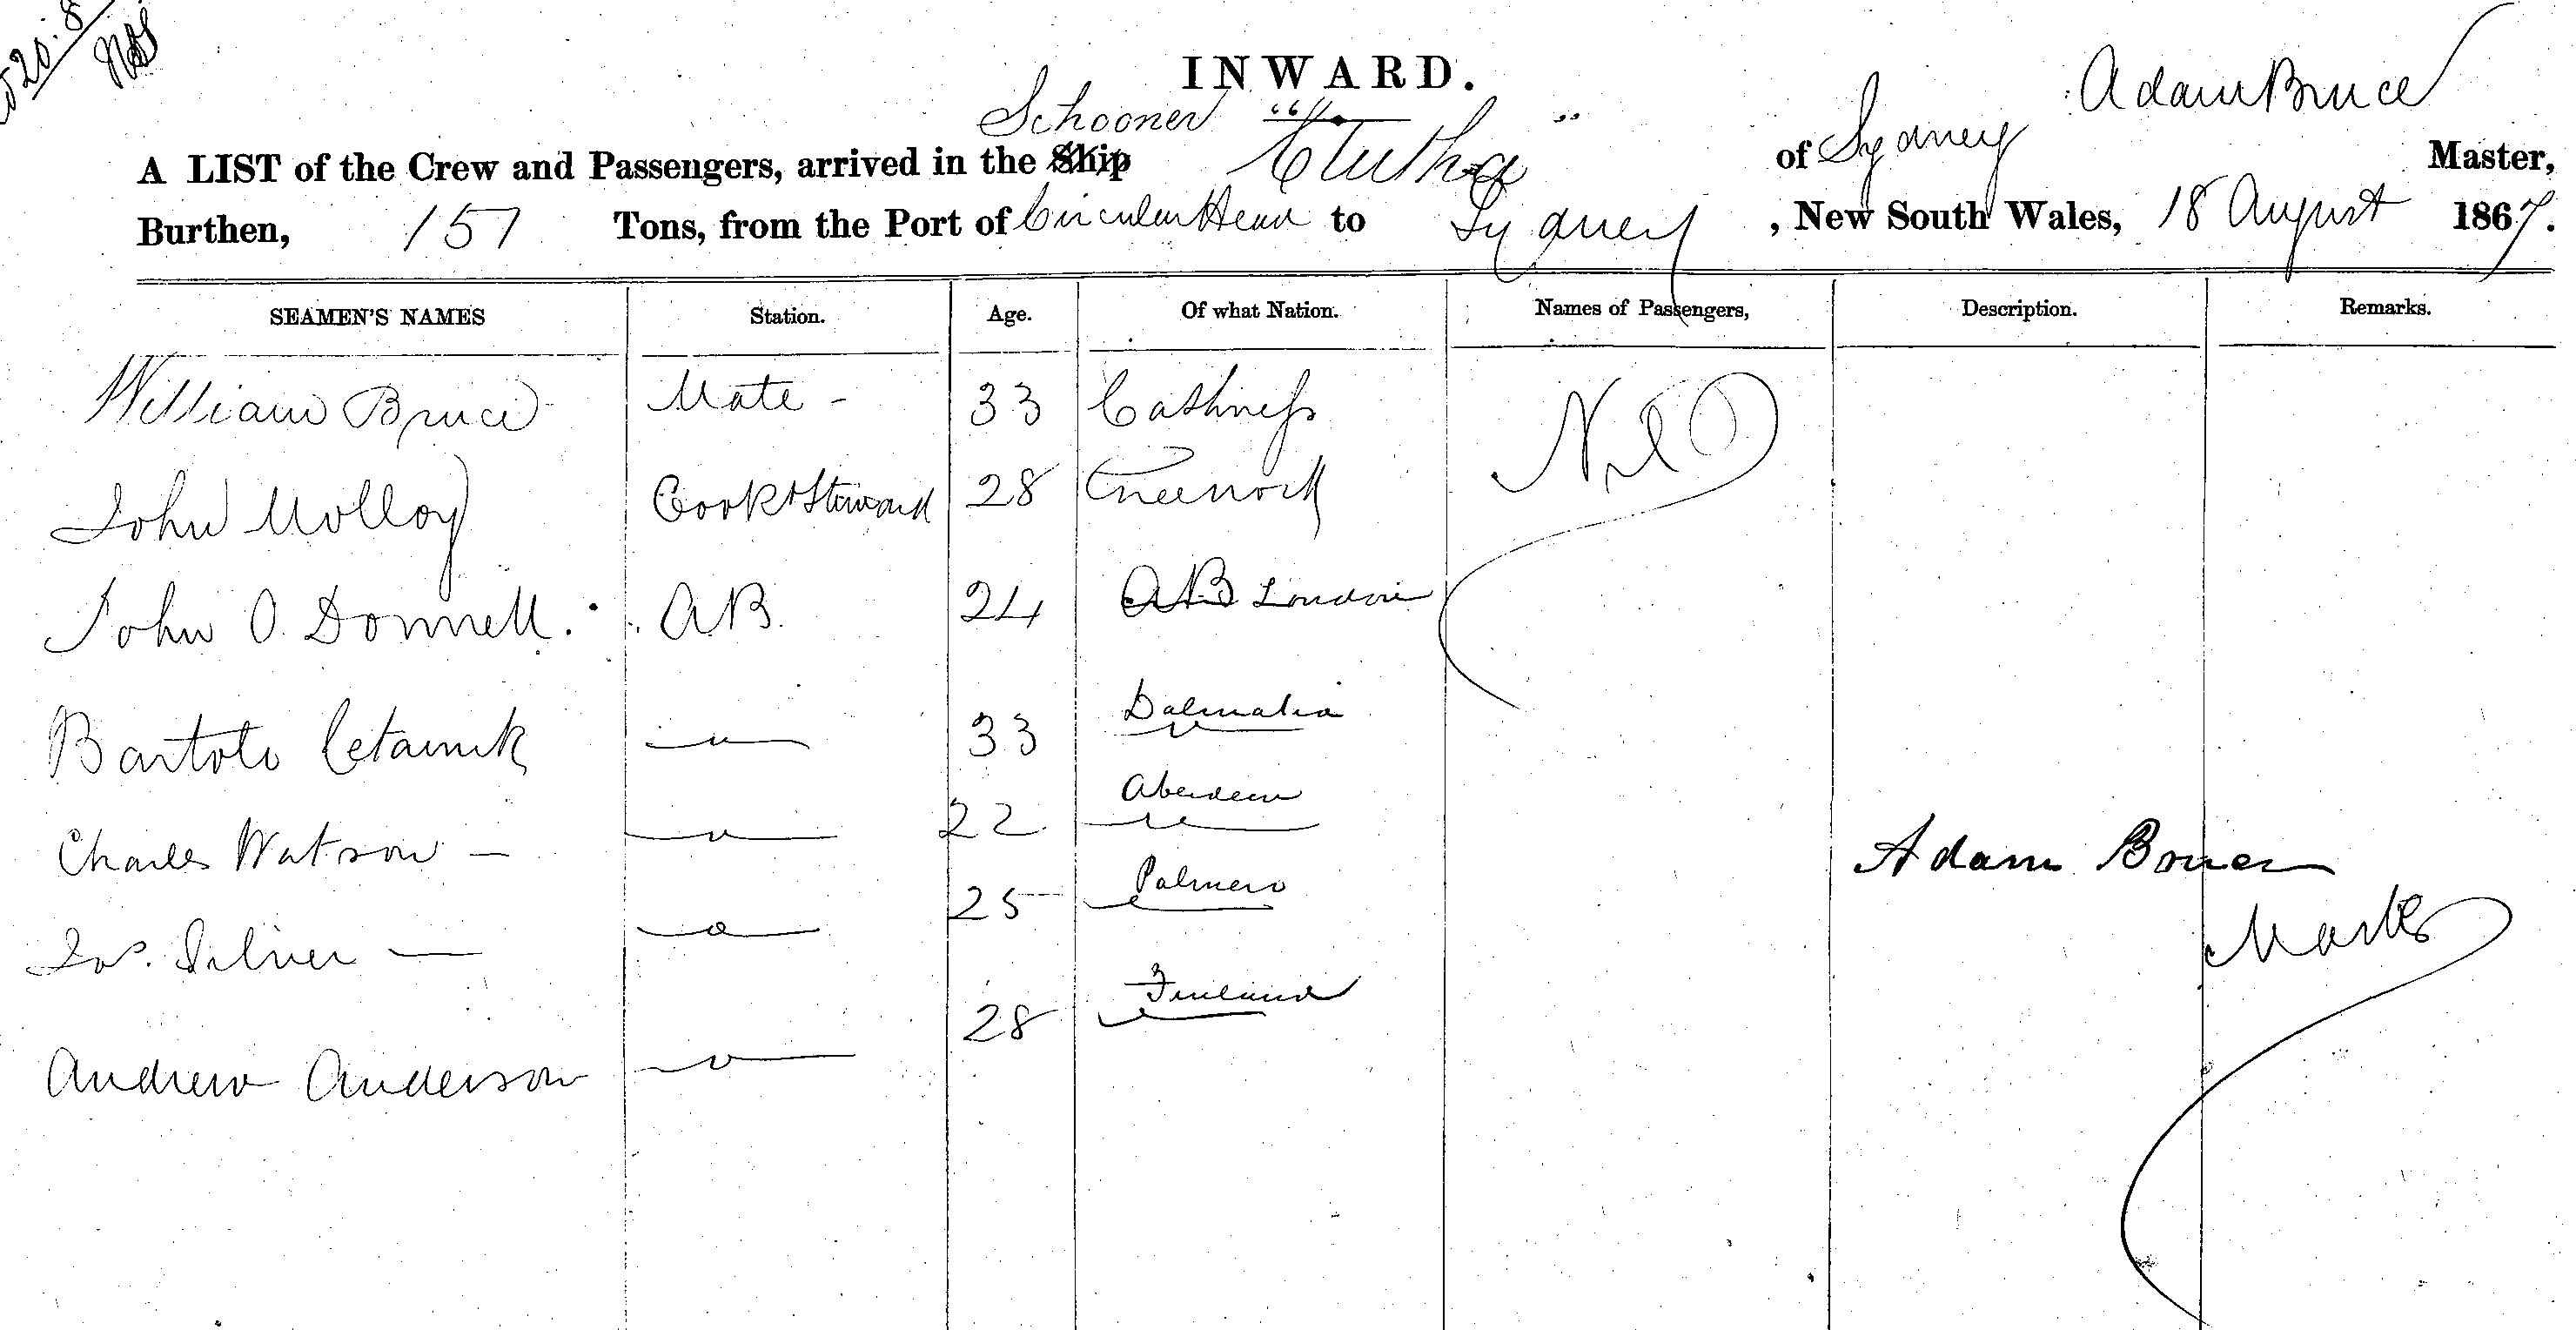 INWARD.
Schooner "Clutha" Adam Bruce
A LIST of the Crew and Passengers, arrived in the Ship of Sydney Master,
Burthen, 157 Tons, from the Port of Circular Head to Sydney, New South Wales, 18 August 1867.
SEAMEN'S NAMES Station. Age. Of what Nation. Names of Passengers, Description. Remarks.
William Bruce Mate - 33 Cathness Nil
John Molloy Cook & Steward 28 Greenock
John O. Donnell. AB. 24 AB London
Bartolo 33 Dalmatia
Charles Watson - 22 Aberdeen
Jos. Silver - 25 Palmero
Adam Bruce
Master
Andrew Anderson 28 Finland